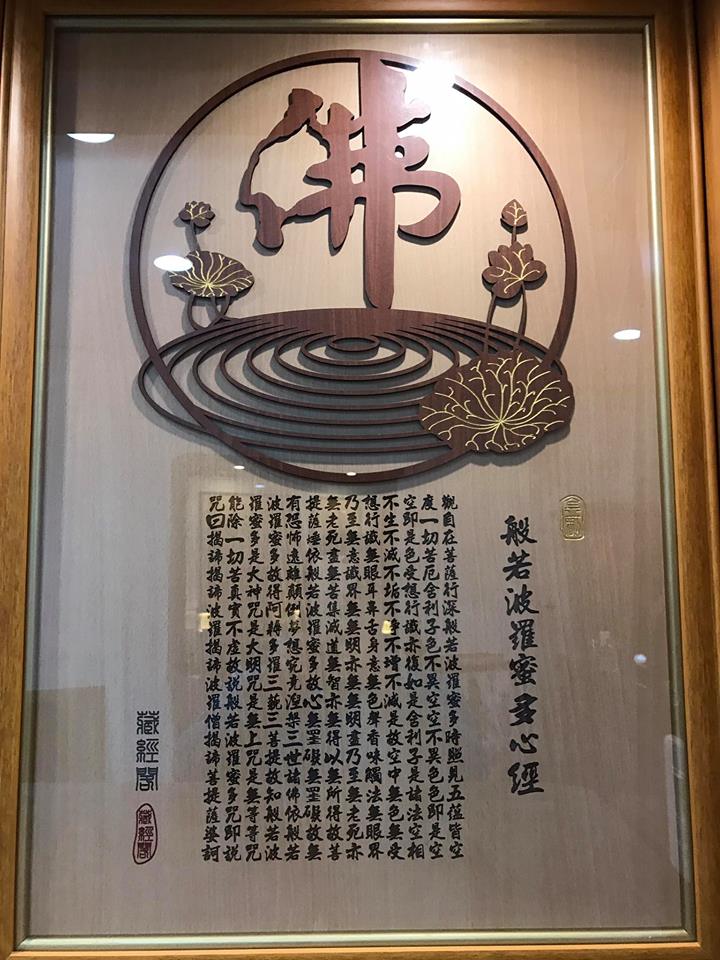 佛
般若波羅蜜多心經
觀自在菩薩行深般若波羅蜜多時照見五蘊皆空
度一切苦厄舍利子色不異空空不異色色即是空
空即是色受想行識亦復如是舍利子是諸法空相
不生不滅不垢不淨不增不減是故空中無色無受
想行識無眼耳鼻舌身意無色聲香味觸法無眼界
乃至無意識界無無明亦無無明盡乃至無老死亦
無老死盡無苦集滅道無智亦無得以無所得故菩
提薩埵依般若波羅蜜多故心無罣礙無罣礙故無
有恐怖遠離顛倒夢想究竟涅槃三世諸佛依般若
波羅蜜多故得阿耨多羅三藐三菩提故知般若波
羅蜜多是大神咒是大明咒是無上咒是無等等咒
能除一切苦真實不虛故說般若波羅蜜多咒即說
咒曰揭諦揭諦波羅揭諦波羅僧揭諦菩提薩婆訶
藏經閣
藏經閣